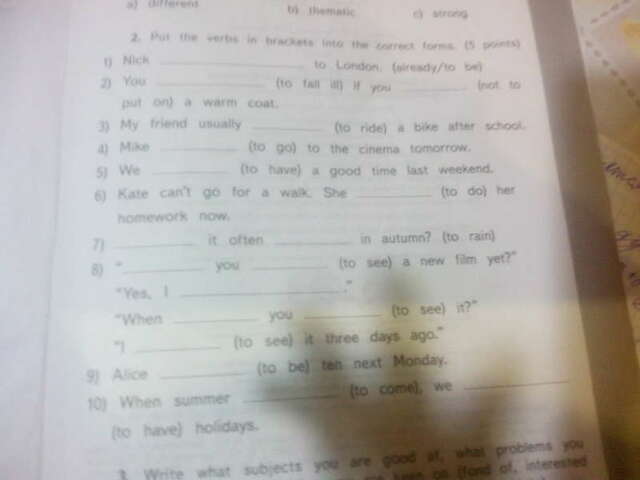 a) different b) thematic c) strong
2. Put the verbs in brackets into the correct forms. (5 points)
1) Nick ____________ to London. (already/to be)
2) You ____________ (to fall ill) if you ________ (not to
put on) a warm coat.
3) My friend usually ________ (to ride) a bike after school.
4) Mike ________ (to go) to the cinema tomorrow.
5) We ________ (to have) a good time last weekend.
6) Kate can't go for a walk. She ________ (to do) her
homework now.
7) ________ it often ________ in autumn? (to rain)
8) "________ you ________ (to see) a new film yet?"
"Yes, I ________________."
"When ________ you ________ (to see) it?"
"I ________ (to see) it three days ago."
9) Alice ________ (to be) ten next Monday.
10) When summer ________ (to come), we ________
(to have) holidays.
3. Write what subjects you are good at, what problems you
are keen on (fond of, interested